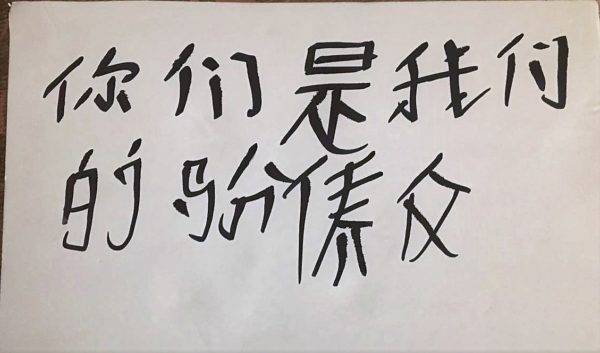 你们是我们
的骄傲